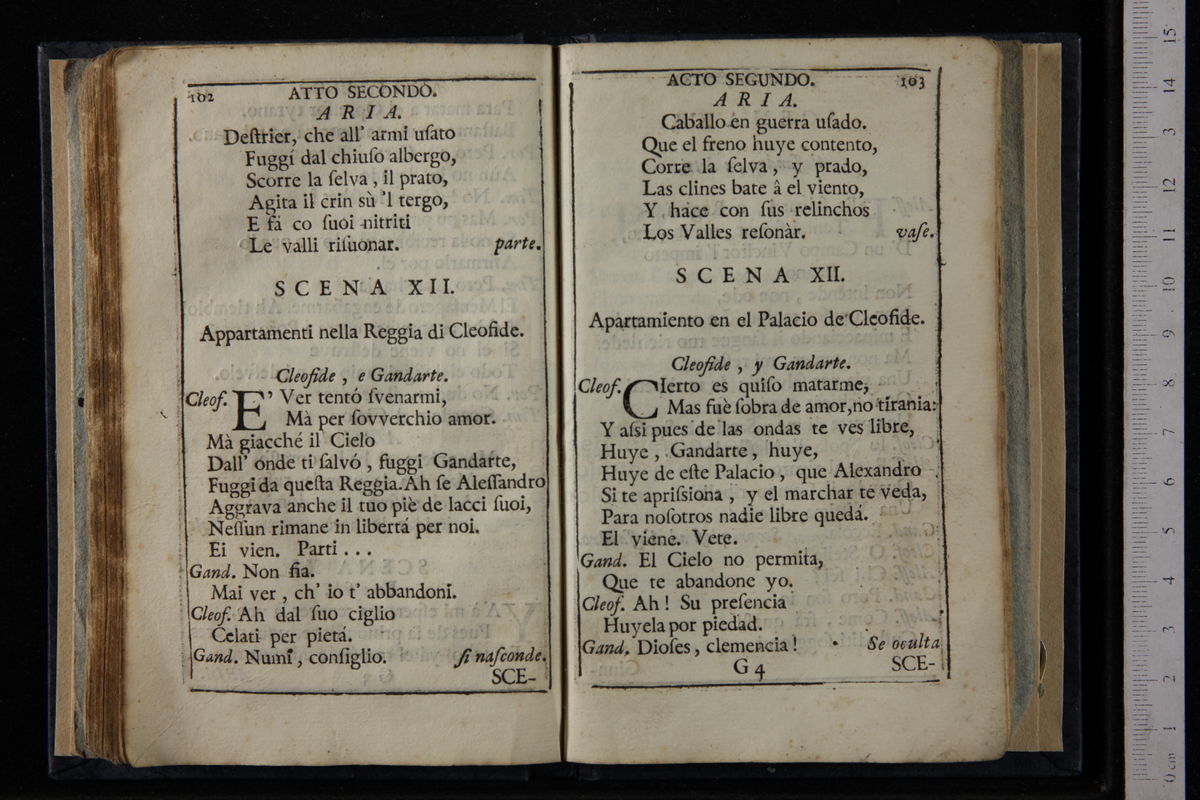 102 ATTO SECONDO.
ARIA.
Deſtrier, che all' armi uſato
Fuggí dal chiuſo albergo,
Scorre la ſelva, il prato,
Agita il crin sù 'l tergo,
E fà co ſuoi nitriti
Le valli riſuonar. parte.
SCENA XII.
Appartamenti nella Reggia di Cleofide.
Cleofide, e Gandarte.
Cleof. E' Ver tentó ſvenarmi,
Mà per ſovverchio amor.
Mà giacché il Cielo
Dall' onde ti ſalvó, fuggi Gandarte,
Fuggi da queſta Reggia. Ah ſe Aleſſandro
Aggrava anche il tuo piè de lacci ſuoi,
Neſſun rimane in libertá per noi.
Ei vien. Parti...
Gand. Non fia.
Mai ver, ch' io t' abbandoni.
Cleof. Ah dal ſuo ciglio
Celati per pietá.
Gand. Numi, conſiglio. ſi naſconde.
SCE-
ACTO SEGUNDO. 103
ARIA.
Caballo en guerra uſado.
Que el freno huye contento,
Corre la ſelva, y prado,
Las clines bate â el viento,
Y hace con ſus relinchos
Los Valles reſonàr. vaſe.
SCENA XII.
Apartamiento en el Palacio de Cleofide.
Cleofide, y Gandarte.
Cleof. CIerto es quiſo matarme,
Mas fuè ſobra de amor, no tirania:
Y aſsi pues de las ondas te ves libre,
Huye, Gandarte, huye,
Huye de eſte Palacio, que Alexandro
Si te apriſsiona, y el marchar te veda,
Para noſotros nadie libre quedá.
El viene. Vete.
Gand. El Cielo no permita,
Que te abandone yo.
Cleof. Ah! Su preſencia
Huyela por piedad.
Gand. Dioſes, clemencia! Se oculta
G 4 SCE-
0 cm 1 2 3 4 5 6 7 8 9 10 11 12 3 14 15